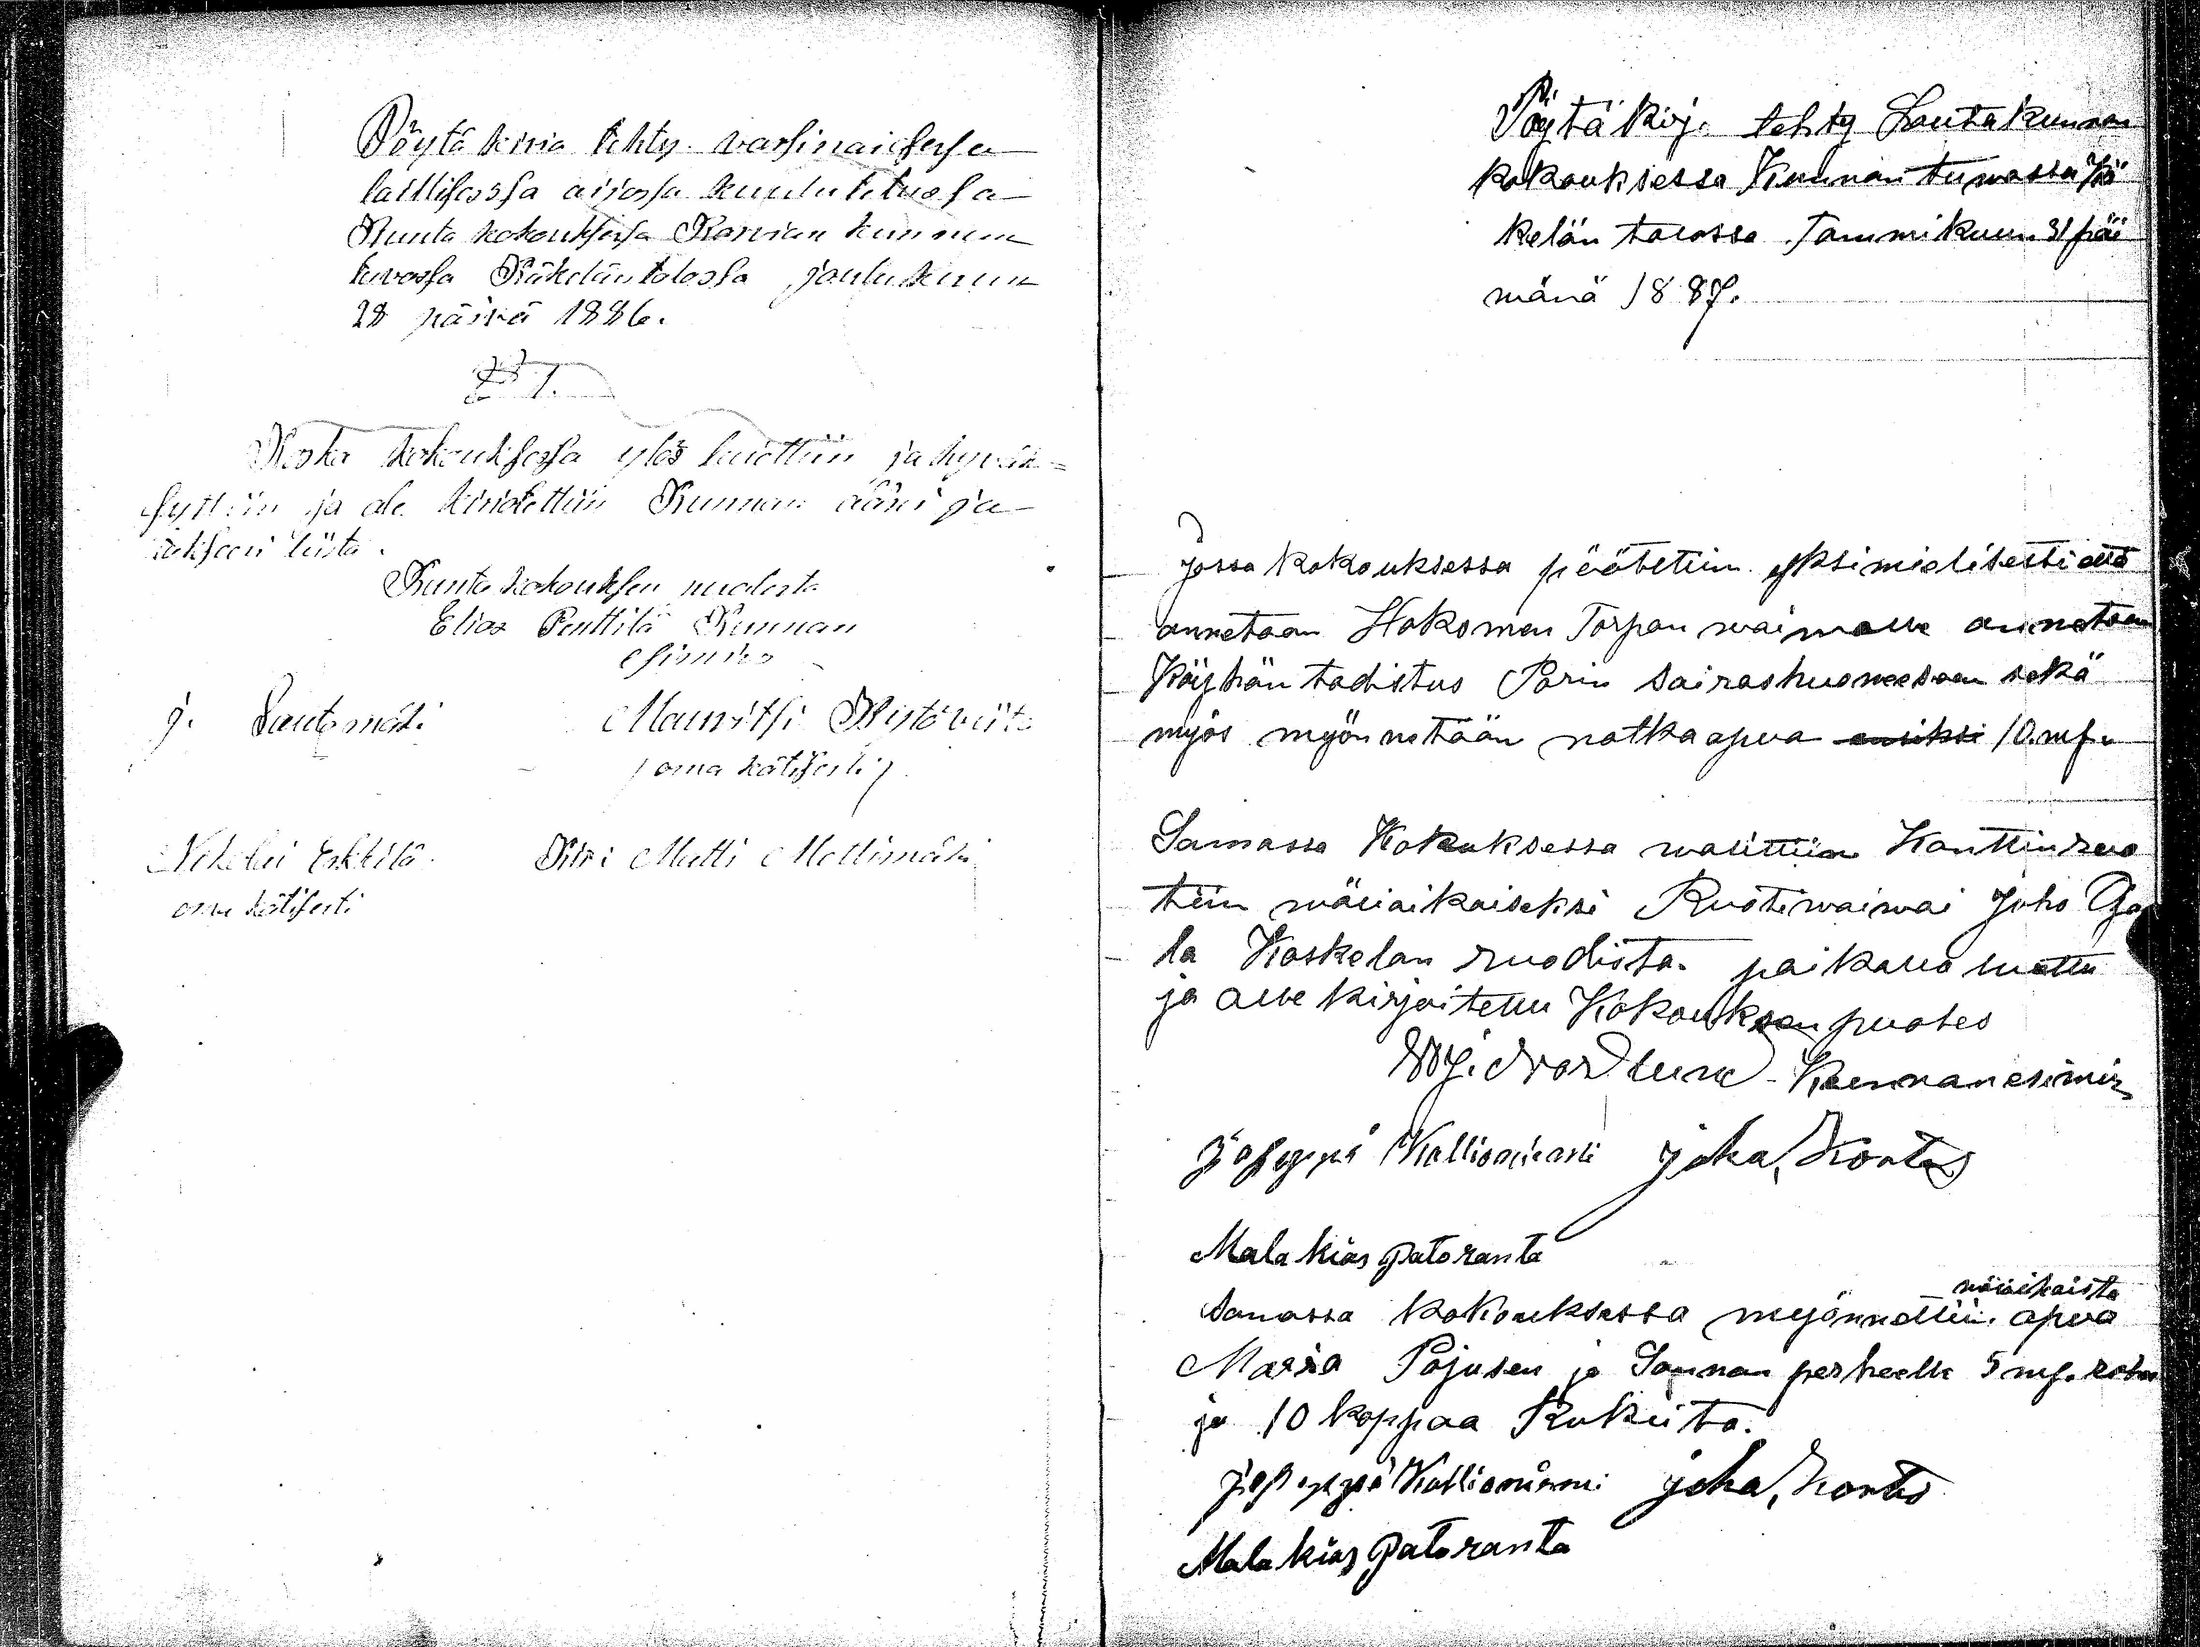 Pöytäkirja tehty varsinaisessa
laillisessa aijassa kuulutetussa
Kunta kokouksessa Karvian kunnan
tuvassa Käkelän talossa joulukuun
28 päivä 1886.
§ 1.
Koska kokouksessa ylös luettiin ja hyväk=
syttiin ja ale kiriotettiin Kunnan ääni ja
takseeri liista.
Kunta kokouksen puolesta
Elias Penttilä Kunnan
esimies
J. Sautamäki Mauritsi Ristöviita
(oma kätisesti)
Nikolai Erkkilä Kiri Matti Mattimäki
oma kätisesti
Pöytäkirj. tehty Lautakunnan
kokouksessa Kunnan tuwassa Kä
kelän talossa Tammikuun 31 päi
wänä 1887.
Jossa kokouksessa päätettiin yksimielisesti että
annetaan Hakoman Torpan waiwalle annetaan
Köyhän todistus Porin Sairashuoneesen sekä
myös myönnetään matka apua ensiksi 10. mk.
Samassa Kokouksessa walittiin Kanttin ruo
tiin wäliaikaiseksi Ruotiwaiwai Joho Oja
la Koskelan ruodista. paikalla luettu
ja alle kirjoitettu Kokouksen puoles
W.J. Nordlund Kunnanesimies
Joseppi Kallioniemi Joha, Kontes
Malakias Patoranta
Samassa kokouksessa myönnettiin wäliaikaista apua
Maria Pojusen ja Sannan perheelle 5 mk. rahaa
ja 10 koppaa Rukiita.
Joseppi Kallioniemi Joha, Kontes
Malakias Patoranta